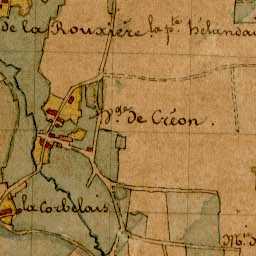 de la Rouxière
la p.te Hélandai
de Créon.
la Corbelais
M.in d